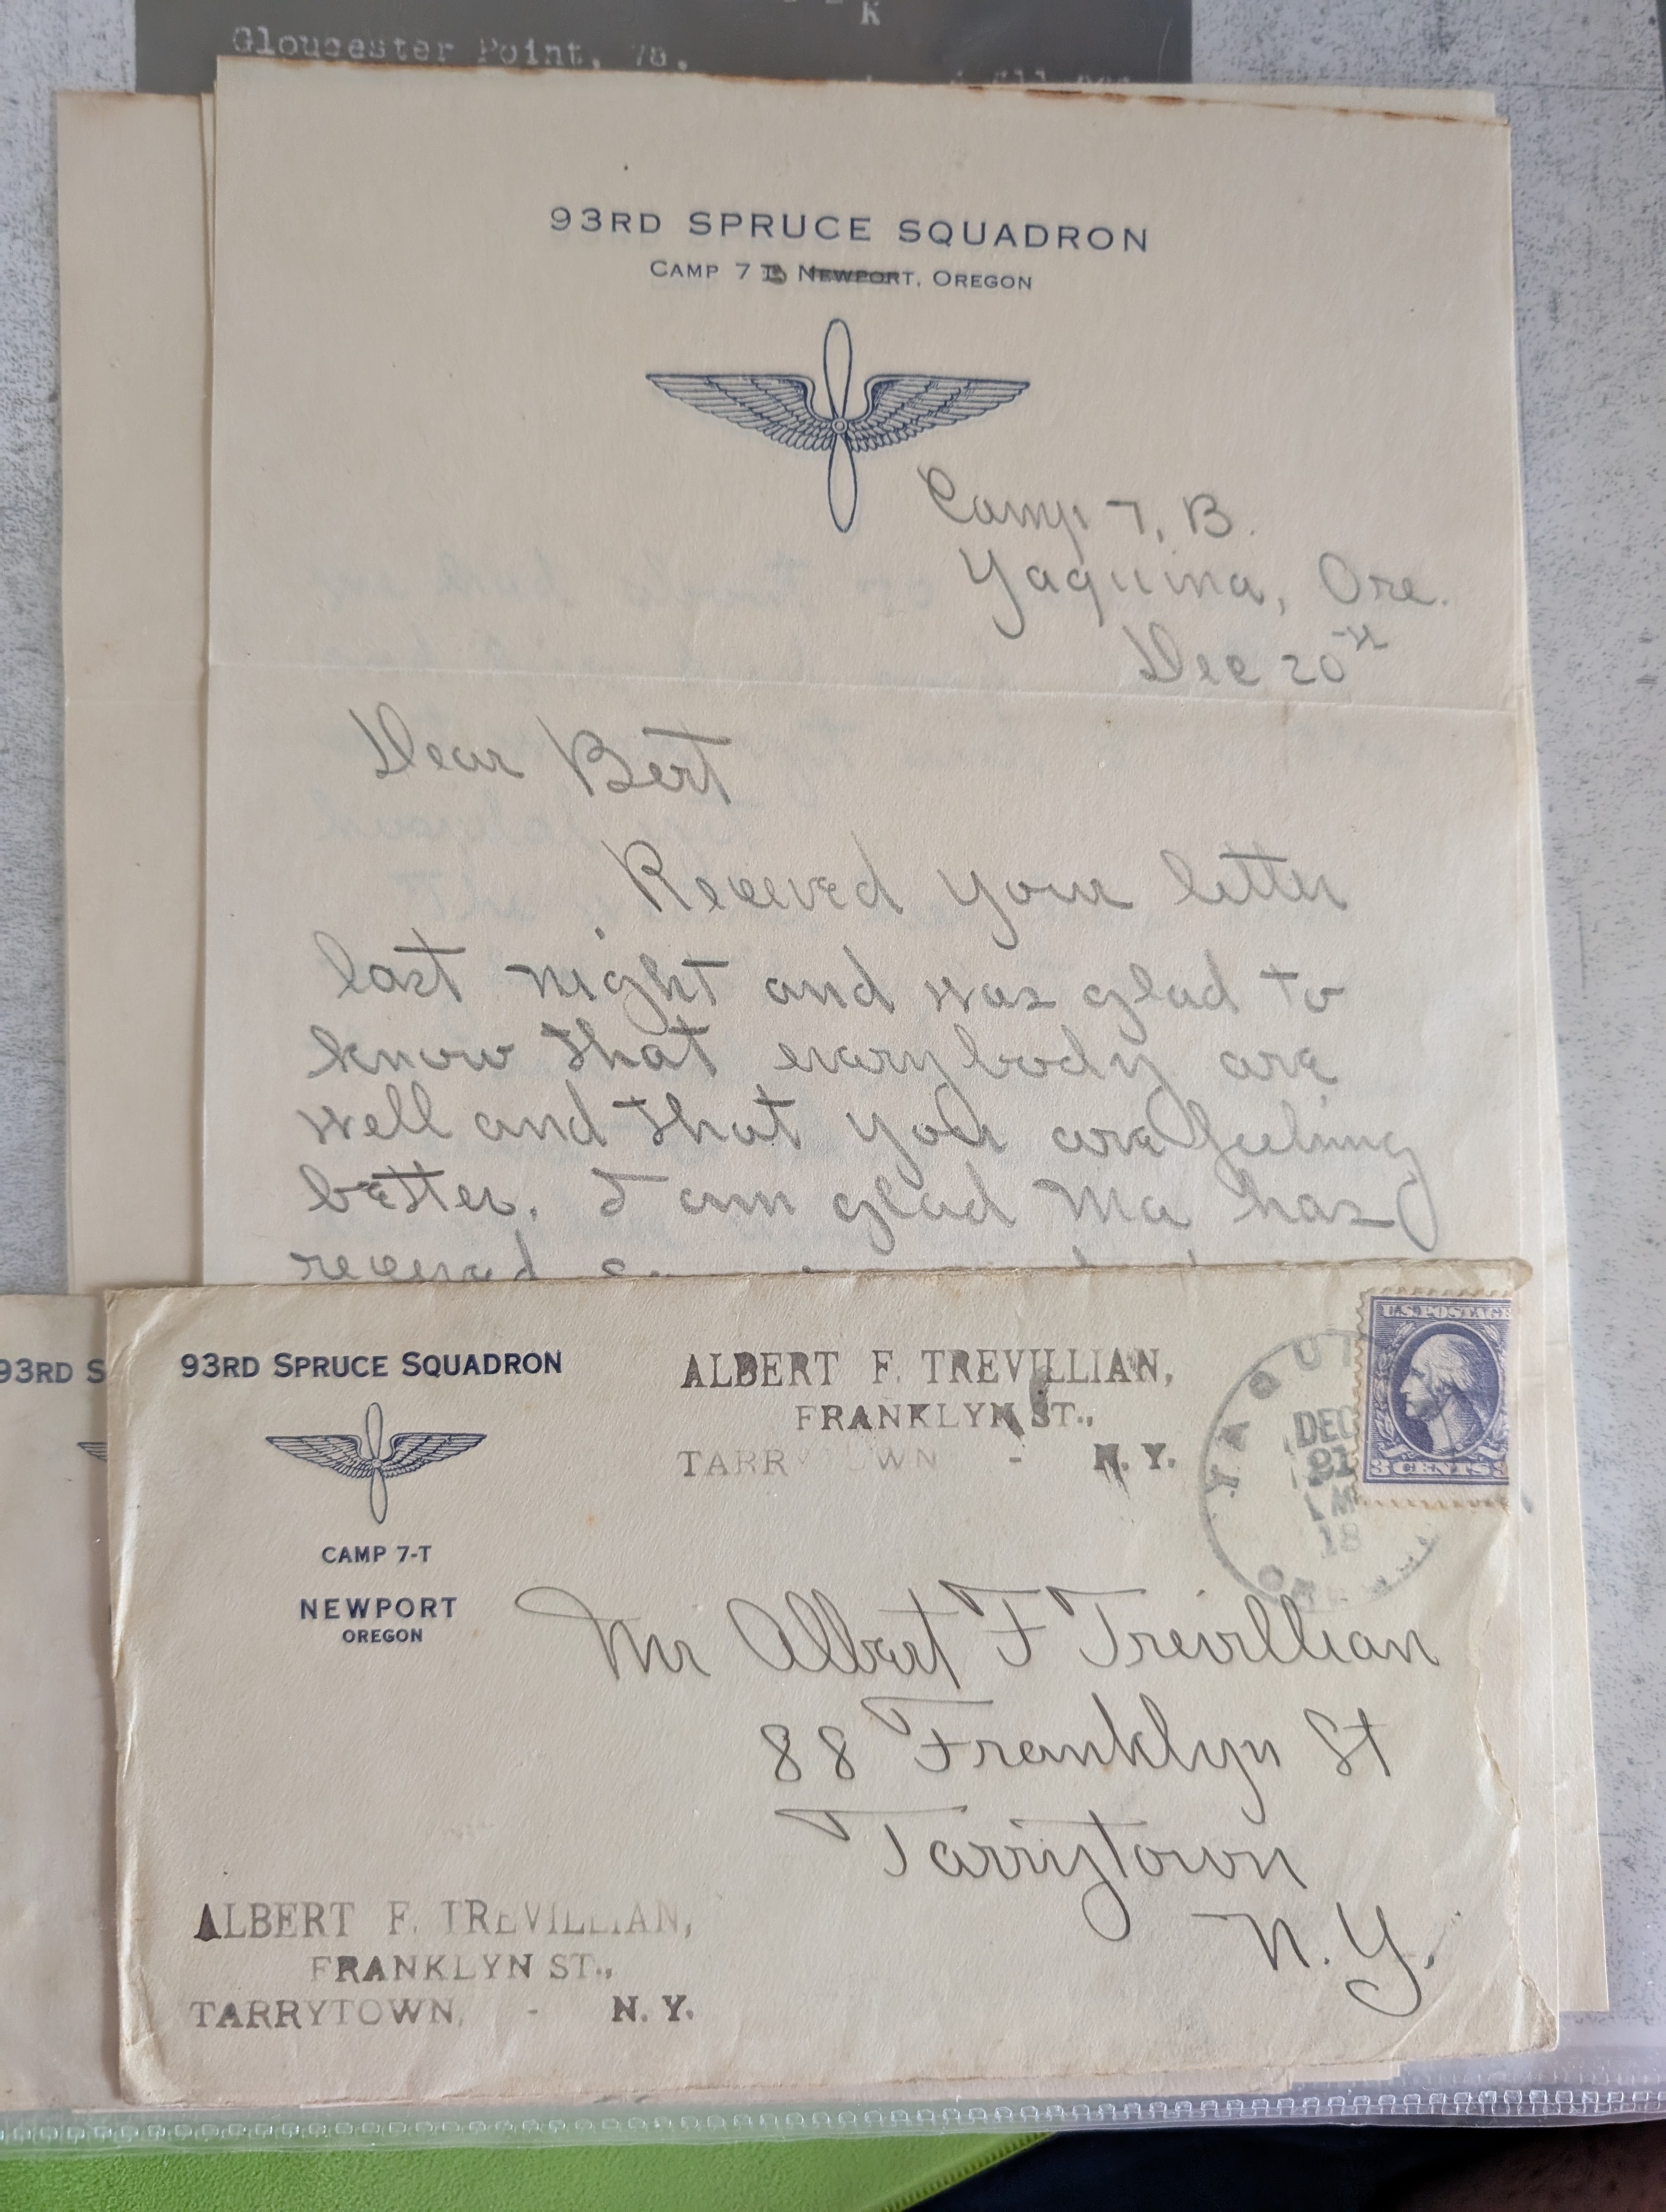 K
Gloucester Point, Va.
93RD SPRUCE SQUADRON
CAMP 7 B NEWPORT, OREGON
Camp 7, B.
Yaquina, Ore.
Dec 20th
Dear Bert
Received your letter
last night and was glad to
know that everybody are
well and that you are feeling
better. I am glad Ma has
received
93RD S
93RD SPRUCE SQUADRON
CAMP 7-T
NEWPORT
OREGON
ALBERT F. TREVILLIAN,
FRANKLYN ST.,
TARRYTOWN - N. Y.
YAQUI
DEC
21
M
18
ORE
U.S. POSTAGE
3 CENTS 3
Mr Albert F Trevillian
88 Franklyn St
Tarrytown
N. Y.
ALBERT F. TREVILLIAN,
FRANKLYN ST.,
TARRYTOWN, - N. Y.